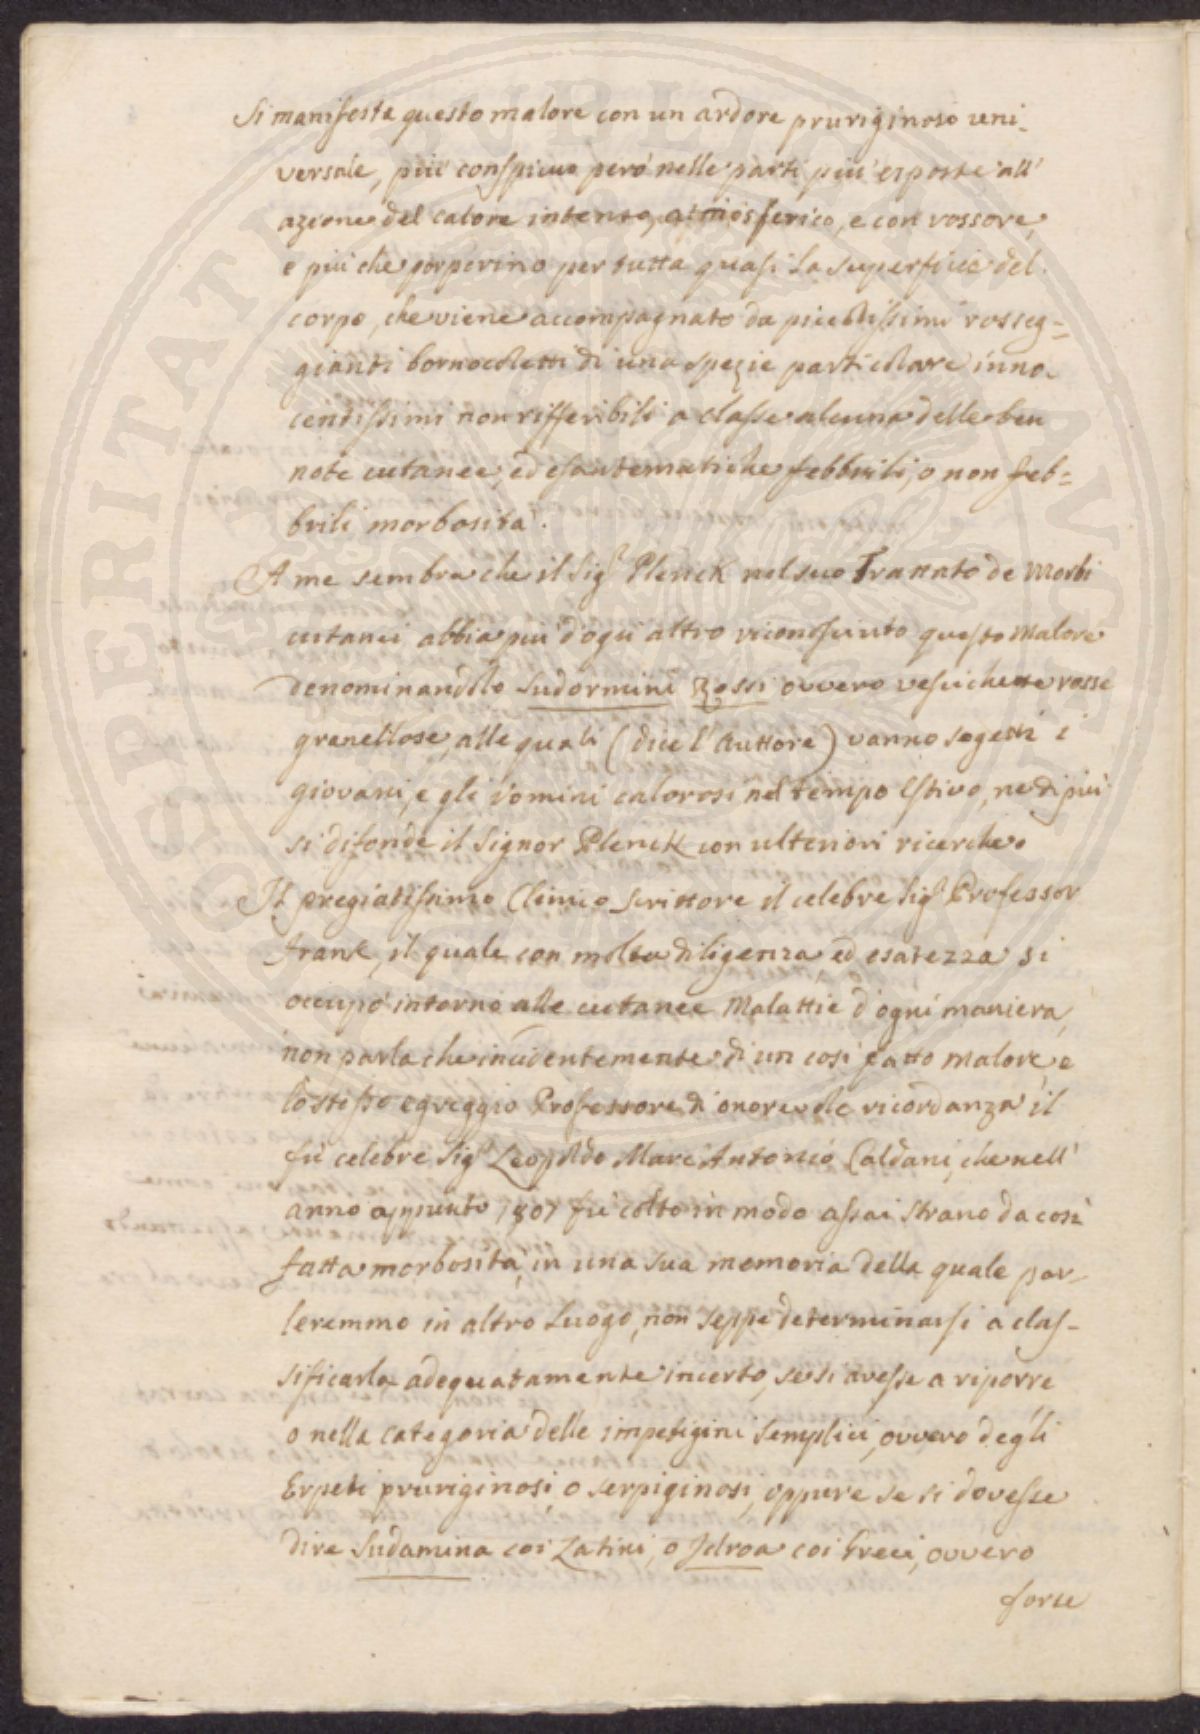 Si manifesta questo malore con un ardore pruriginoso uni-
versale, più conspicuo però nelle parti più esposte all'
azione del calore intento, atmosferico, e con rossore,
e più che porporino per tutta quasi la superficie del
corpo, che viene accompagnato da picolissimi rosseg-
gianti bornocoletti di una spezie particolare inno-
centissimi non rifferibili a classe alcuna delle ben
note cutanee, ed esantematiche febbrili, o non feb-
brili morbosità.
A me sembra che il Sigr Plenck nel suo Trattato de Morbi
cutanei abbia più d'ogni altro riconosciuto questo Malore
denominandolo Sudormini Rossi ovvero vesichette rosse
granellose, alle quali (dice l'Auttore) vanno sogetti i
giovani, e gli uomini calorosi nel tempo Estivo, ne di più
si difonde il Signor Plenck con ulteriori ricerche.
Il pregiatissimo Clinico Scrittore il celebre Sigr Professor
Frank, il quale con molta diligenza ed esatezza si
occupò intorno alle cutanee Malattie d'ogni maniera,
non parla che incidentemente di un così fatto malore, e
lo stesso egreggio Professore di onorevole ricordanza il
fù celebre Sigr Leopoldo Marc'Antonio Caldani, che nell'
anno appunto 1807 fù colto in modo assai strano da così
fatta morbosità, in una sua memoria della quale par-
leremmo in altro Luogo, non seppe determinarsi a clas-
sificarla adequatamente incerto, se si avesse a riporre
o nella categoria delle impetigini semplici, ovvero degli
Erpeti pruriginosi, o serpiginosi, oppure se si dovesse
dire Sudamina coi Latini, o Idroa coi Greci, ovvero
forse